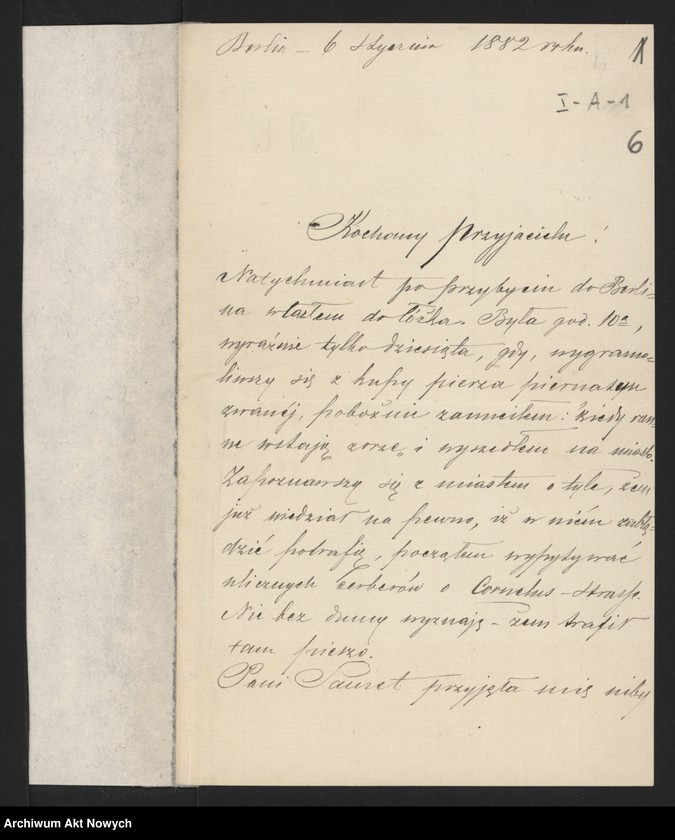 Berlin – 6 Stycznia 1882 roku.
1
I-A-1
6
Kochany Przyjacielu!
Natychmiast po przybyciu do Berli=
na wlazłem do łóżka. Była god. 10ª,
wyraźnie tylko dziesiąta, gdy, wygramo=
liwszy się z kupy pierza piernatem
zwanej, pobożnie zanuciłem: "Kiedy ran=
ne wstają zorze" i wyszedłem na miasto.
Zapoznawszy się z miastem o tyle, żem
już wiedział na pewno, iż w niém zabłą=
dzić potrafię, począłem wypytywać
ulicznych Cerberów o Cornelius-Strasse.
Nie bez dumy wyznaję – żem trafił
tam pieszo.
Pani Sauret przyjęła mię niby
Archiwum Akt Nowych